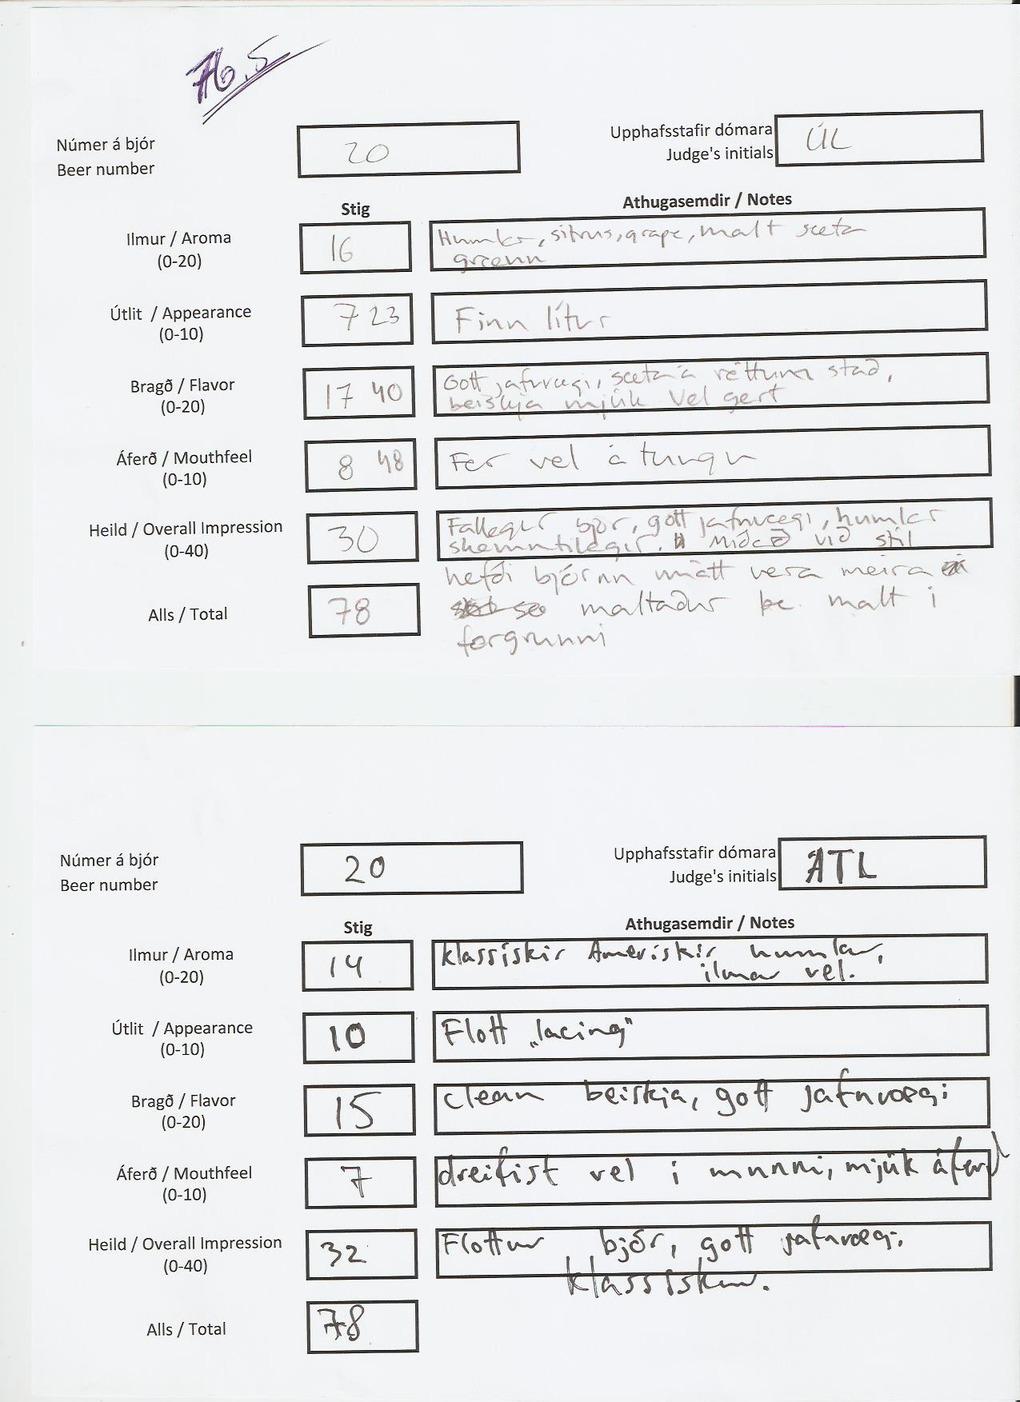 76.5
Númer á bjór
Beer number
20
Upphafsstafir dómara
Judge's initials
ÚL
Stig
Athugasemdir / Notes
Ilmur / Aroma
(0-20)
16
Humlar, sitrus, grape, malt sæta
græenn
Útlit / Appearance
(0-10)
7 23
Finn lítur
Bragð / Flavor
(0-20)
17 40
Gott jafnvægi, sæta á réttum stað,
beiskja mjúk Vel gert
Áferð / Mouthfeel
(0-10)
8 48
Fer vel á tungu
Heild / Overall Impression
(0-40)
30
Fallegur bjór, gott jafnvægi, humlar
skemmtilegir. Miðað við stíl
hefði bjórinn mátt vera meira
maltaður þe. malt í
forgrunni
Alls / Total
78
Númer á bjór
Beer number
20
Upphafsstafir dómara
Judge's initials
ATL
Stig
Athugasemdir / Notes
Ilmur / Aroma
(0-20)
14
klassískir Amerískir humlar,
ilmar vel.
Útlit / Appearance
(0-10)
10
Flott „lacing"
Bragð / Flavor
(0-20)
15
clean beiskja, gott jafnvægi
Áferð / Mouthfeel
(0-10)
7
dreifist vel í munni, mjúk áferð
Heild / Overall Impression
(0-40)
32
Flottur bjór, gott jafnvægi,
klassískur.
Alls / Total
78